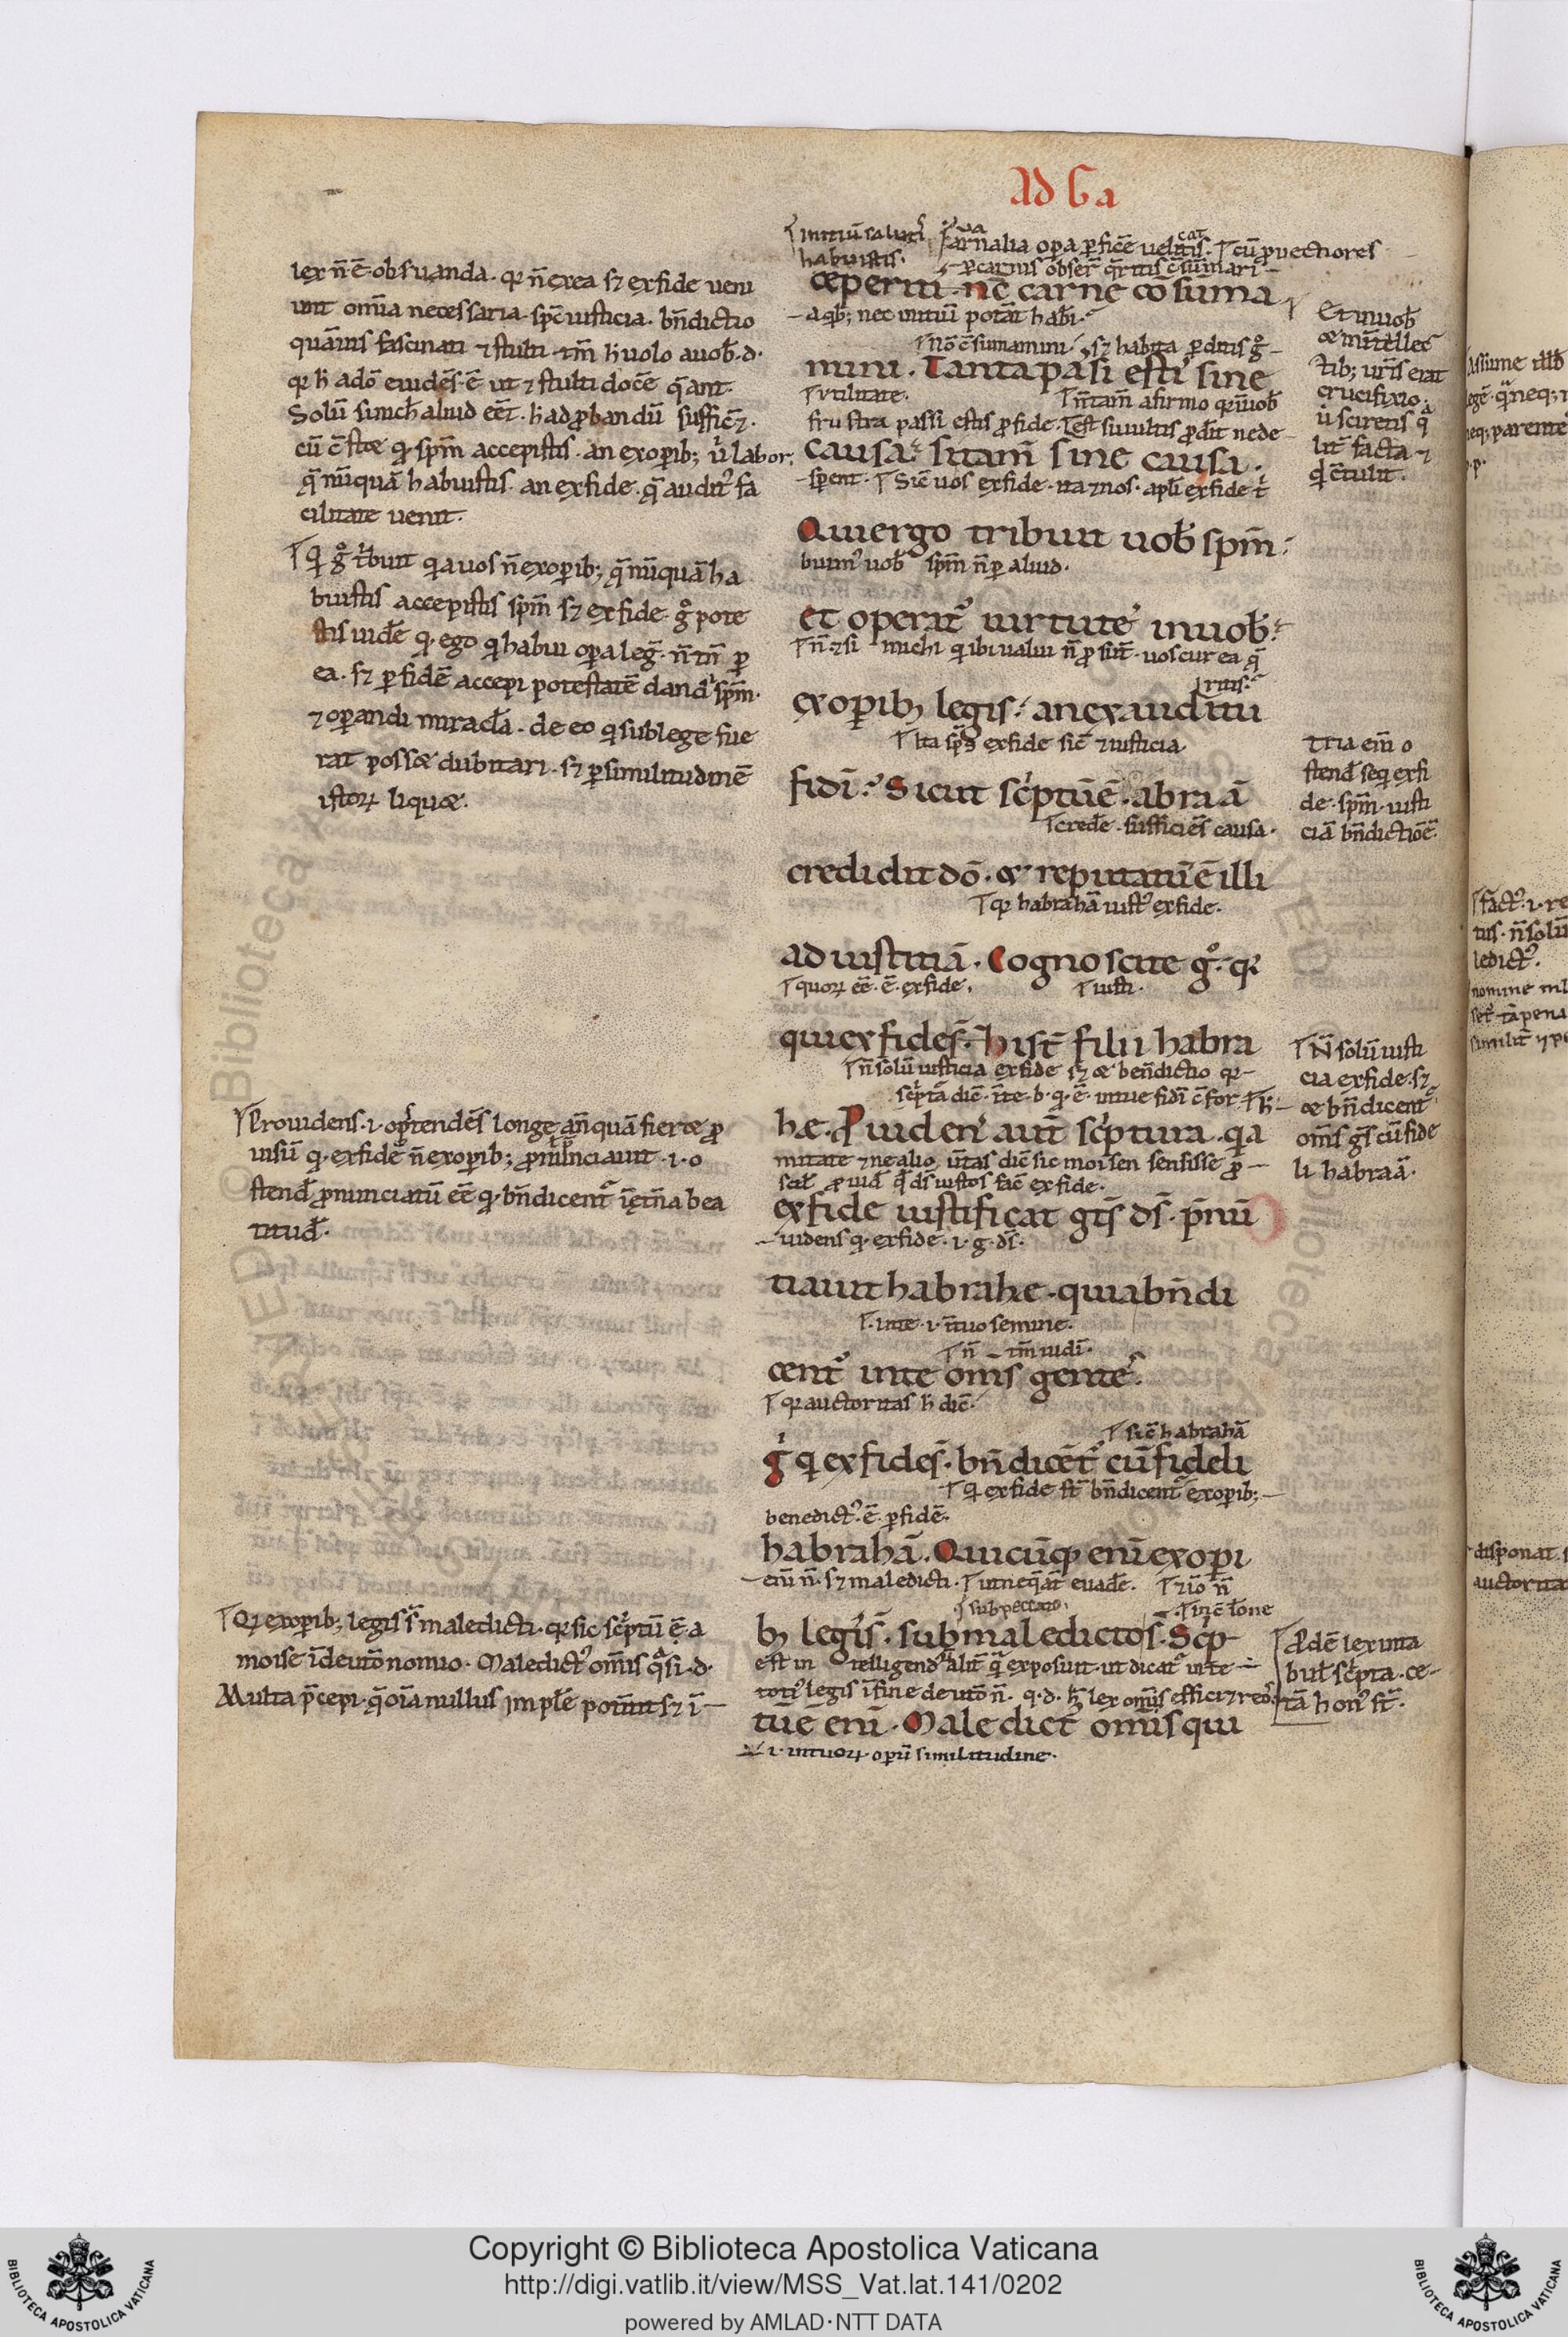 Ad Ga
lex n̄ ē obs̄uanda. qꝛ n̄ ex ea sꝫ ex fide ueni
unt om̄ia necessaria. sp̄c iusticia. bn̄dictio
quāuis fascinati ⁊ stulti. tm̄ h̄ uolo a uob̄. d.
qꝛ h̄ adō euidēs ē ut ⁊ stulti docē q̄ant.
Solū simch̄ aliud eēt. h̄ ad ꝓbandū sufficꝫ.
cū c̄stꝫ qd spm̄ accepistis. an ex oꝑib; ul labor,
q̄ nūquā habuistis. an ex fide. q̄ auditꝰ fa
cilitate uenit.
Qi gͦ tͥbuit q̄a uos n̄ ex oꝑib; q̄ nūquā ha
buistis accepistis spm̄ sꝫ ex fide. gͦ pote
stis uidē qd ego qi habui oꝑa leḡ. n̄ tn̄ ꝑ
ea. sꝫ ꝑ fidē accepi potestatē dandi spm̄.
⁊ oꝑandi miracl̄a. de eo qi sub lege fue
rat possꝫ dubitari. sꝫ ꝑ similitudinē
istoꝝ liquꝫ.
Prouidens. i. ostendēs longe antequā fieret ꝓ
uisū qd ex fide n̄ ex oꝑib; ꝓnunciauit. i. o
stend̄ ꝓnunciatū eē qd bn̄dicentᷣ ī etn̄a bea
titud̄.
Qꝛ ex oꝑib; legis sͭ maledicti. qꝛ sic scͥptū ē a
moise ī deutōnomio. Maledictꝰ om̄is q̄si. d.
Multa p̄cepi. q̄ oīa nullus implē poterit sꝫ ī
initiū salutis
habuistis.
carnalia oꝑa ꝑficē uelitis. cū ꝓuectiores
ꝑ carnis obser̄ q̄ritis c̄sūmari
cœperitis. nc̄ carne cosūma
a qb; nec initiū potāt hab̄i.
nō c̄sumamini. sꝫ habita ꝑditis gͦ
mini. Tanta passi estis sine
utilitate. n̄ tam̄ afirmo qꝛ in uob̄
frustra passi estis ꝓ fide. Test si uultis ꝓdit nede
causa. si tam̄ sine causa.
sperent. Sic̄ uos ex fide. ita ⁊ nos. apl̄i ex fide tͥ
Qui ergo tribuit uob̄ spm̄.
buimꝰ uob̄ spm̄ n̄ ꝑ aliud.
et operatᷣ uirtutes in uob̄.
n̄. ⁊ si michi qi ibi ualui n̄ ꝓsunt. uos cur ea q̄
ritis.
ex oꝑib; legis. an ex auditu
Ita sp̄s ex fide sic̄ ⁊ iusticia
fidei. Sicut scͥptū ē. abraā
crede. sufficiēs causa.
credidit dō. ꝫ reputatū ē illi
qꝛ habrahā iustꝰ ex fide.
ad iustitiā. Cognoscite gͦ. qꝛ
quoꝝ eē. ē. ex fide. iusti.
qui ex fide s̄. hi s̄t filii habra
n̄ solū iusticia ex fide sꝫ ꝫ ben̄dictio qꝛ
scͥpta dic̄. īte. b. q. ē. in tue fidi c̄for
hæ. Puidens aut̄ scͥptura. q̄a
mitate ⁊ ne alio. ūtas dic̄ sic moisen sensisse ꝓ
ex fide iustificat gt̄s ds̄. p̄nū
uidens qd ex fide. i. g. ds̄.
tiauit habrahe. quia bn̄di
in te. i. ī tuo semine.
n̄ tm̄ iudi.
centᷣ in te om̄s gentes.
qꝛ auctoritas h̄ dic̄.
sic̄ habrahā
gͥ qi ex fide s̄. bn̄dicēt᷑ cū fideli
Qi ex fide st̄ bn̄dicentᷣ ex oꝑib;
benedictꝰ ē ꝑ fidē.
habrahā. Quicūq; enī ex oꝑi
eni n̄. sꝫ maledicti. ut neq̄āt euad̄e. ⁊ iō n̄
sub peccato.
b; legis s̄. sub maledicto s̄. Scͥp
est in telligendū aliter q̄ exposuit. ut dicatᷣ in te
totiꝰ legis ī fine deutōn̄. q. d. h̄ lex om̄is effici ⁊ reos.
tū ē eni. Maledictꝰ omīs qui
i. in tuoꝝ oꝑū similitudine.
Et in uob̄
ꝫ in intellec
tib; ur̄is erat
crucifixio.
ul̄ sciretis q̄
lit̄ facta ⁊
qd c̄tulit.
tria eni o
stend̄ sequi ex fi
de. spm̄. iusti
ciā bn̄dictiōē.
N̄ solū iusti
cia ex fide. sꝫ
ꝫ bn̄dicentᷣ
om̄s gs̄ cū fide
li habraā.
Adē lex inta
bul̄ scͥpta. ce
tā honꝰ st̄.
Copyright © Biblioteca Apostolica Vaticana
http://digi.vatlib.it/view/MSS_Vat.lat.141/0202
powered by AMLAD·NTT DATA